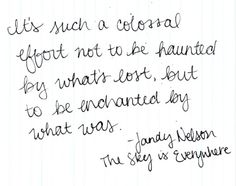 It's such a colossal
effort not to be haunted
by what's lost, but
to be enchanted by
what was.
-Jandy Nelson
The Sky is Everywhere